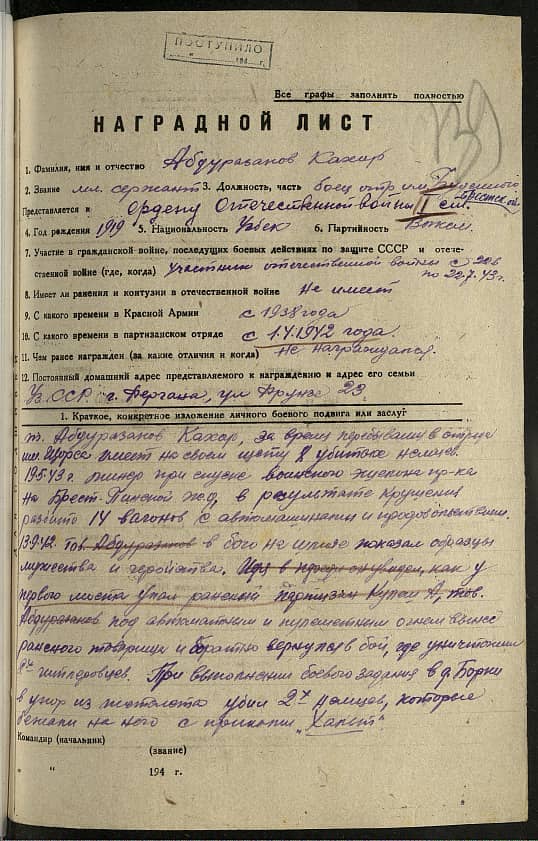 ПОСТУПИЛО
194 г.
Все графы заполнять полностью
139
НАГРАДНОЙ ЛИСТ
1. Фамилия, имя и отчество Абдуразаков Кахар
2. Звание мл. сержант 3. Должность, часть боец отр. им.
Представляется к Ордену Отечественной войны II ст. Брестск. об.
4. Год рождения 1919 5. Национальность Узбек 6. Партийность
7. Участие в гражданской войне, последующих боевых действиях по защите СССР и отече-
ственной войне (где, когда) участник отечественной войны с
по 22.7.43 г.
8. Имеет ли ранения и контузии в отечественной войне Не имеет
9. С какого времени в Красной Армии с 1938 года
10. С какого времени в партизанском отряде с 1.4.1942 года
11. Чем ранее награжден (за какие отличия и когда) Не награждался.
12. Постоянный домашний адрес представляемого к награждению и адрес его семьи
Уз. ССР г. Фергана, ул Фрунзе 23
1. Краткое, конкретное изложение личного боевого подвига или заслуг
т. Абдуразаков Кахар, за время пребывания в отряде
им. Щорса имеет на своем счету 8 убитых немцев.
19.5.43 г. минер при спуске воинского эшелона пр-ка
на Брест-Пинской ж.д., в результате крушения
разбито 14 вагонов с автомашинами и продовольствием.
13.9.42. тов. Абдуразаков в бою на показал образцы
мужества и геройства. как у
первого моста упал раненый партизан А, тов.
Абдуразаков под автоматным и пулеметным огнем вынес
раненого товарища и обратно вернулся в бой, где уничтожил
гитлеровцев. При выполнении боевого задания в д. Борки
в упор из пистолета убил 2х немцев, которые
бежали на него с криком „Хальт“.
Командир (начальник)
(звание)
„ “ 194 г.